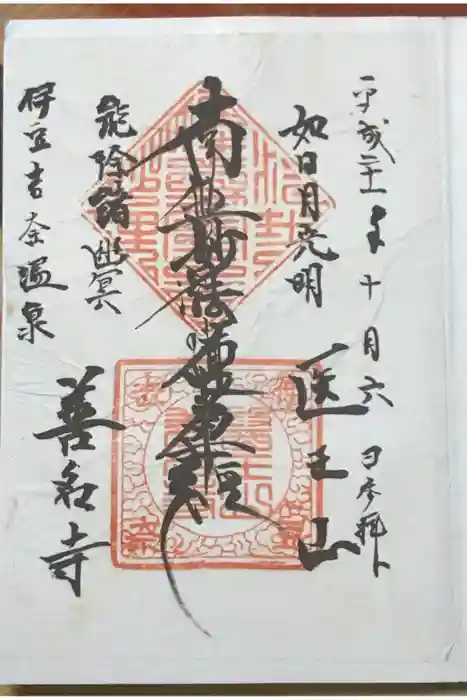 平成二十一年十月六日参拝
如日月光明
医王山
南無妙法蓮華経
能除諸幽冥
伊豆吉奈温泉
善名寺
伊豆
吉奈